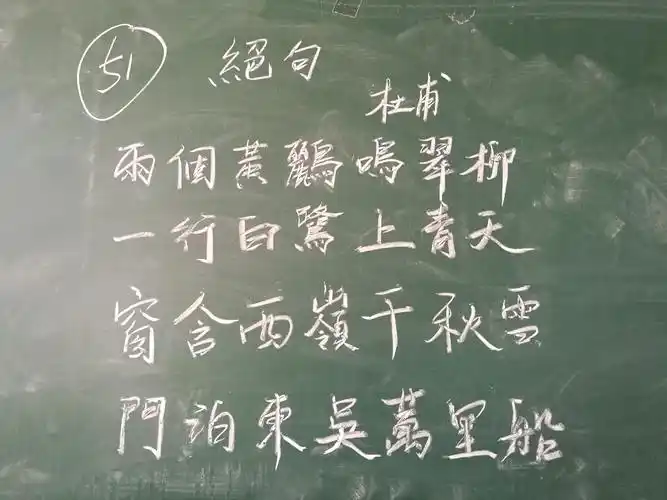 51 絕句
杜甫
兩個黃鸝鳴翠柳
一行白鷺上青天
窗含西嶺千秋雪
門泊東吳萬里船